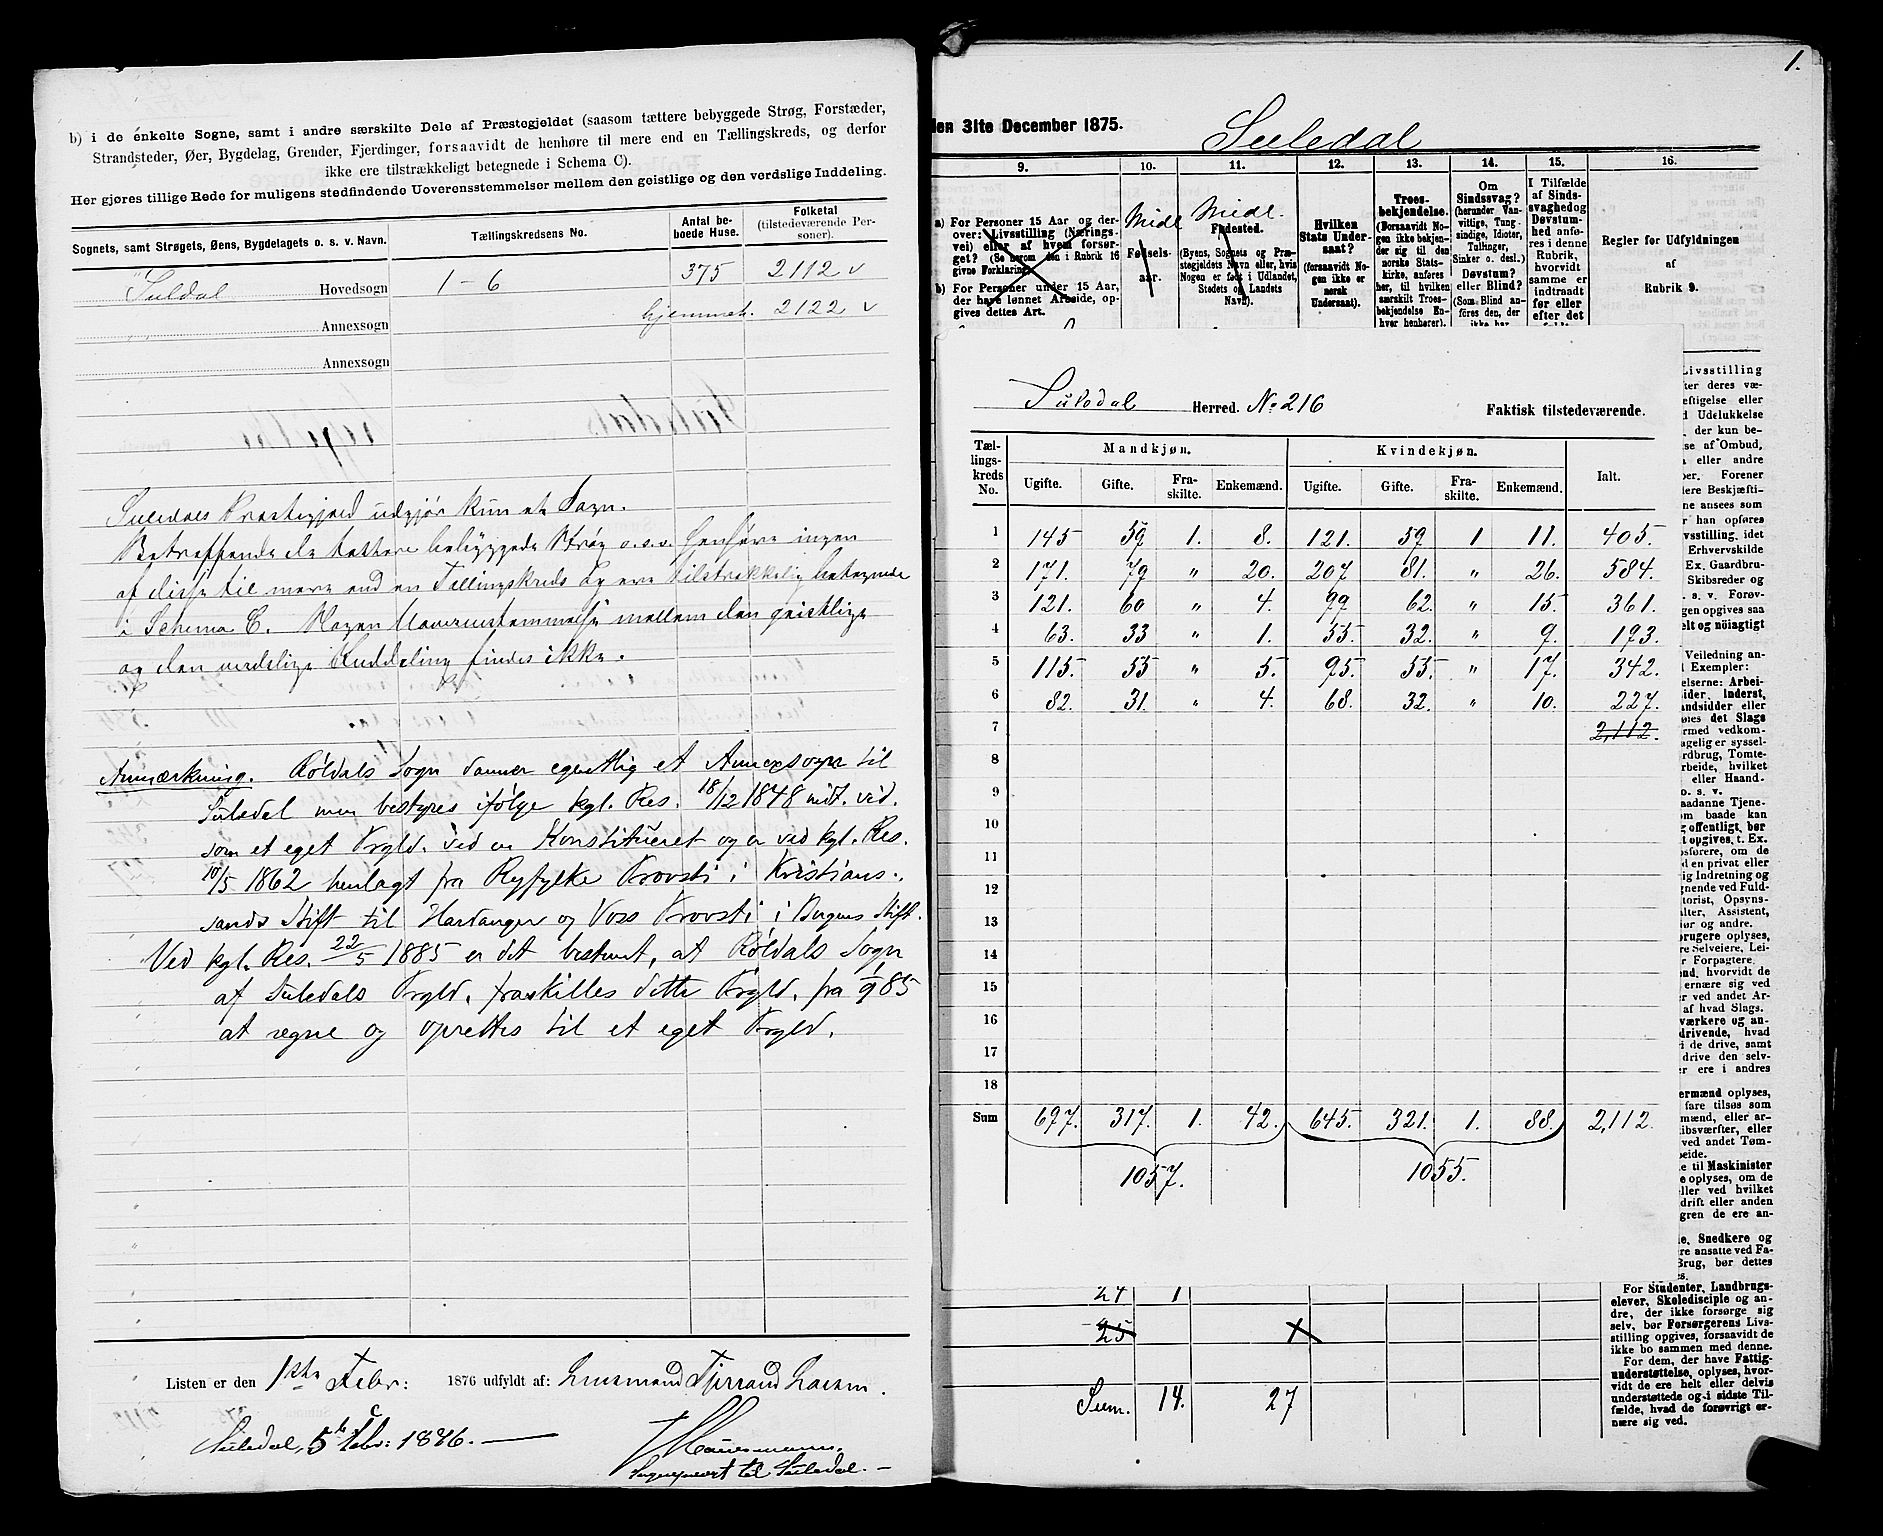 b) i de enkelte Sogne, samt i andre særskilte Dele af Præstegjeldet (saasom tættere bebyggede Strøg, Forstæder,
Strandsteder, Øer, Bygdelag, Grender, Fjerdinger, forsaavidt de henhøre til mere end en Tællingskreds, og derfor
ikke ere tilstrækkeligt betegnede i Schema C).
Her gjøres tillige Rede for muligens stedfindende Uoverensstemmelser mellem den geistlige og den verdslige Inddeling.
Sognets, samt Strøgets, Øens, Bygdelagets o. s. v. Navn.
Tællingskredsens No.
Antal be-
boede Huse.
Folketal
(tilstedeværende Per-
soner).
Suldal Hovedsogn 1 - 6 375 2112 v
Annexsogn hjemmeh. 2122 v
Annexsogn
Suledals Præstegjæld udgjør kun et Sogn.
Betræffende de tættere bebyggede Strøg o.s.v. henhøre ingen
af disse til mere end en Tællingskreds og ere tilstrækkelig betegnede
i Schema C. Nogen Uoverenstemmelse mellem den geistlige
og den verdslige Inddeling findes ikke.
Anmærkning. Røldals Sogn danner egentlig et Annexsogn til
Suledal men bestyres ifølge kgl. Res. 18/12 1848 midt. vid.
som et eget Prgld. ved en Konstitueret og er ved kgl. Res.
10/5 1862 henlagt fra Ryfylke Provsti i Kristians-
sands Stift til Hardanger og Voss Provsti i Bergens Stift.
Ved kgl. Res. 22/5 1885 er det bestemt, at Røldals Sogn
af Suledals Prgld. fraskilles dette Prgld. fra 1/9 85
at regne og oprettes til et eget Prgld.
Listen er den 1ste Febr: 1876 udfyldt af: Gudmund Tjerrand
Suledal, 5te Febr: 1876.
Sognepræst til Suledal.
1.
den 31te December 1875. Suledal
9.
10.
11.
12.
13.
14.
15.
16.
a) For Personer 15 Aar og der-
over: Livsstilling (Nærings-
vei) eller af hvem forsør-
get? (Se nerom den i Rubrik 16
givne Forklaring).
b) For Personer under 15 Aar,
der have lønnet Arbeide, op-
gives dettes Art.
Midl
Fødsels-
aar.
Midl.
Fødested.
(Byens, Sognets og Præ-
stegjeldets Navn eller, hvis
Nogen er født i Udlandet,
Stedets og Landets
Navn).
Hvilken
Stats Under-
saat?
(forsaavidt No-
gen ikke er
norsk
Undersaat).
Troes-
bekjendelse.
(Forsaavidt No-
gen ikke bekjen-
der sig til den
norske Stats-
kirke, anføres
her, til hvilken
særskilt Troes-
bekjendelse En-
hver henhører).
Om
Sindssvag?
(herunder Van-
vittige, Tung-
sindige, Idioter,
Tullinger,
Sinker o. desl.)
Døvstum?
eller Blind?
(Som Blind an-
føres den, der
ikke har
I Tilfælde
af Sinds-
svaghed og
Døvstum-
hed anfø-
res i denne
Rubrik,
hvorvidt
samme er
indtraadt
før eller
efter det
Regler for Udfyldningen
af
Rubrik 9.
Suledal Herred. No 216 Faktisk tilstedeværende.
Tæl-
lings-
kreds
No.
Mandkjøn. Kvindekjøn. Ialt.
Ugifte. Gifte. Fra-
skilte. Enkemænd. Ugifte. Gifte. Fra-
skilte. Enkemænd.
1 145 59 1. 8. 121. 59 1 11. 405.
2 171. 79 " 20. 207 81. " 26. 584.
3 121. 60 " 4. 99 62. " 15. 361.
4 63. 33 " 1. 55. 32. " 9. 193.
5 115. 55 " 5. 95. 55. " 17. 342.
6 82. 31. " 4. 68. 32. " 10. 227.
7 2,112.
8
9
10
11
12
13
14
15
16
17
18
Sum 697. 317. 1. 42. 645. 321. 1. 88. 2,112.
1057. 1055.
24 1
25
Sum. 14. 27
Livsstilling
ter deres væ-
eftigelse eller
d Udelukkelse
der kun be-
se af Ombud,
a eller andre
ber. Forener
lere Beskjæfti-
ne ansees som
r han opføres
vsstilling, idet
Erhvervskilde
Ex. Gaardbru-
Skibsreder og
. s. v. Forøv-
gen opgives saa
elt og nöiagtigt
Veiledning an-
l Exempler:
elserne: Arbei-
sider, Inderst,
andsidder eller
nes det Slags
ermed vedkom-
agelig er syssel-
rdbrug, Tomte-
rbeide, hvilket
eller Haand-
o. s. v.
aadanne Tjene-
om baade kan
g offentligt, bør
t opgives, t. Ex.
osførere, om de
d en privat eller
ig Indretning og
gnende ved Fuld-
torist, Opsyns-
alter, Assistent,
ør og andre.
brugere oplyses,
re Selveiere, Lei-
r Forpagtere.
nd, hvorvidt de
ernære sig ved
r ved andet Ar-
af hvad Slags.
værkere og an-
drivende, hvad
i de drive, samt
drive den selv-
r ere i andres
ermænd oplyses,
fare tilsøs som
mænd, eller ar-
ibsværfter, eller
ved andet Tøm-
beide.
e til Maskinister
e oplyses, om de
ller ved hvilket
drift eller anden
gren de ere an-
e, Snedkere og
re ansatte ved Fa-
Brug, bør dettes
es.
For Studenter, Landbrugs-
elever, Skoledisciple og an-
dre, der ikke forsørge sig
selv, bør Forsørgerens Livs-
stilling opgives, forsaavidt de
ikke bo sammen med denne.
For dem, der have Fattig-
understøttelse, oplyses, hvor-
vidt de ere helt eller delvis
understøttede og i sidste Til-
fælde, hvad de forøvrigt er-
nære sig ved.